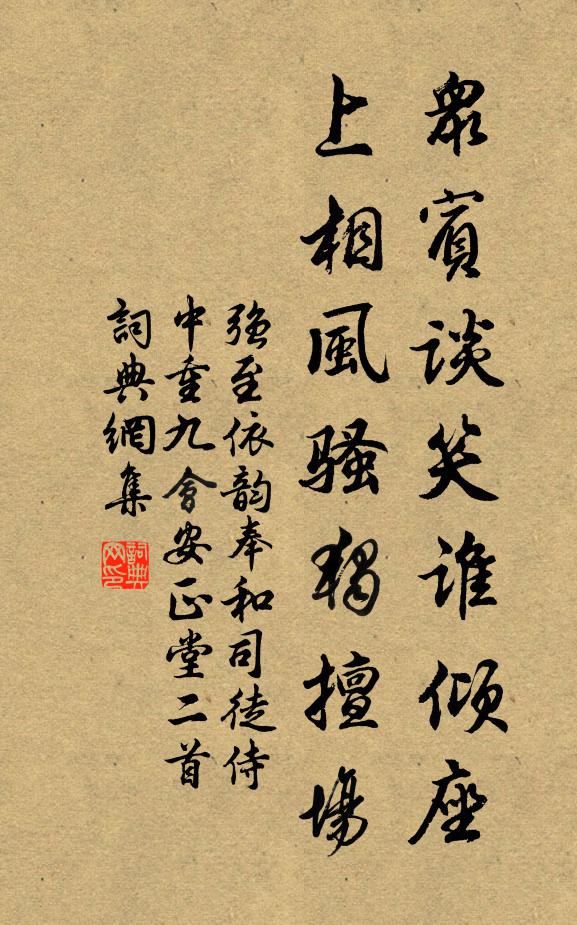 眾賓談笑誰傾座
上相風騷獨擅場
強至依韵奉和司徒侍
中重九會安正堂二首
詞典網集
詞典網印